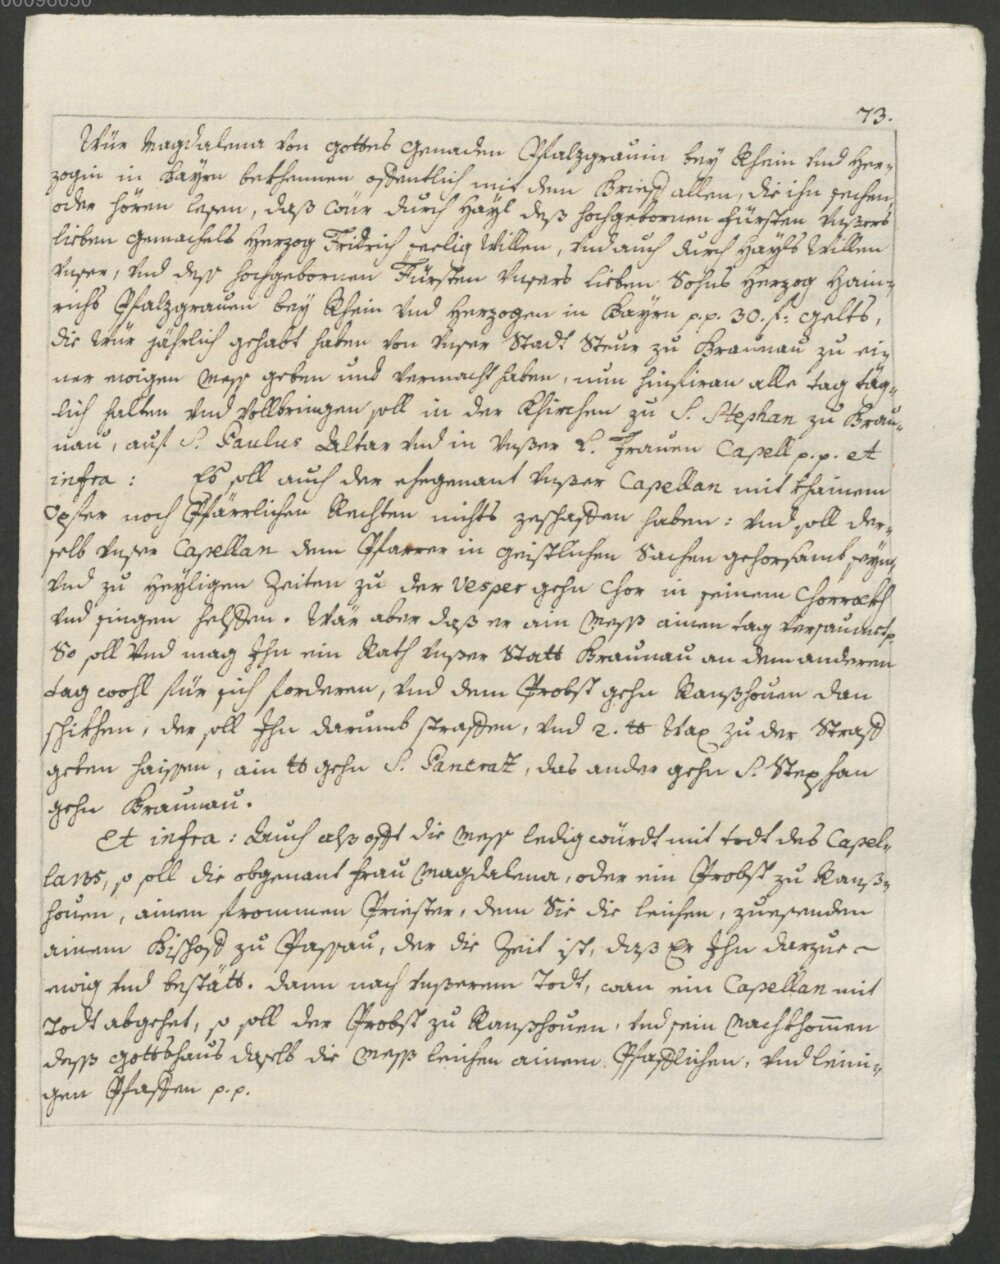 00096050
73.
Wür Magdalena von Gottes Genaden Pfalzgräuin bey Rhein vnd Her-
zogin in Bayrn bekhennen offentlich mit dem Brieff allen, die ihn sechen,
oder hören lesen, daß wür durch Hayl deß hochgebornen Fürsten vnßers
lieben Gemachels Herzog Fridrich seelig willen, vnd auch durch Hayls willen
vnser, vnd deß hochgebornen Fürsten vnsers lieben Sohns Herzog Hain-
richs Pfalzgrauen bey Rhein vnd Herzogen in Bayrn p.p. 30. f: gelts,
die wür jährlich gehabt haben von vnser Stadt Steur zu Braunau zu ei-
ner ewigen Mess geben und vermacht haben, nun hinfüran alle tag täg-
lich halten vnd vollbringen soll in der Khirchen zu S. Stephan zu Brau-
nau, auf S. Paulus Altar vnd in vnßer L. Frauen Capell p.p. et
infra : Es soll auch der ehegenant vnßer Capellan mit khainem
Opfer noch Pfärrlichen Rechten nichts zeschaffen haben: vnd soll der-
selb vnser Capellan dem Pfarrer in geistlichen Sachen gehorsamb seyn,
vnd zu Heyligen Zeiten zu der Vesper gehn Chor in seinem Chorrockh
vnd singen helffen. Wär aber daß er ain Mess ainen tag versaumet,
So soll vnd mag Ihn ein Rath vnßer Statt Braunau an dem anderen
tag wohl für sich forderen, vnd dem Probst gehn Ranßhouen dan
schikhen, der soll Ihn darumb straffen, vnd 2. ℔ Wax zu der Straff
geben haissen, ain ℔ gehn S. Pancratz, das ander gehn S. Stephan
gehn Braunau.
Et infra: Auch alß offt die Mess ledig würdt mit todt des Capel-
lans, so soll die obgenant Frau Magdalena, oder ein Probst zu Ranß-
houen, ainen frommen Priester, dem Sie die leichen, zuesenden
ainem Bischoff zu Passau, der die Zeit ist, daß Er Ihn darzue -
ewig vnd bestätt. dann nach vnßerem Todt, wan ein Capellan mit
Todt abgehet, so soll der Probst zu Ranßhouen, vnd sein Nachkhommen
deß Gottshaus daselb die Mess leichen ainem Pfafflichen, vnd
gen Pfaffen p.p.